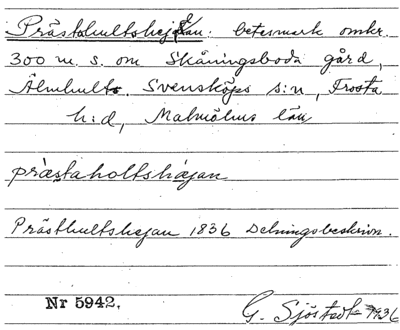 Prästahultshejdan: betesmark omkr.
300 m. s. om Skåningsboda gård,
Älmhult. Svensköps s:n, Frosta
h:d, Malmöhus län
præstaholtshæjan
Prästhultshejan 1836 Delningsbeskrivn.
Nr 5942.
G. Sjöstedt 1936